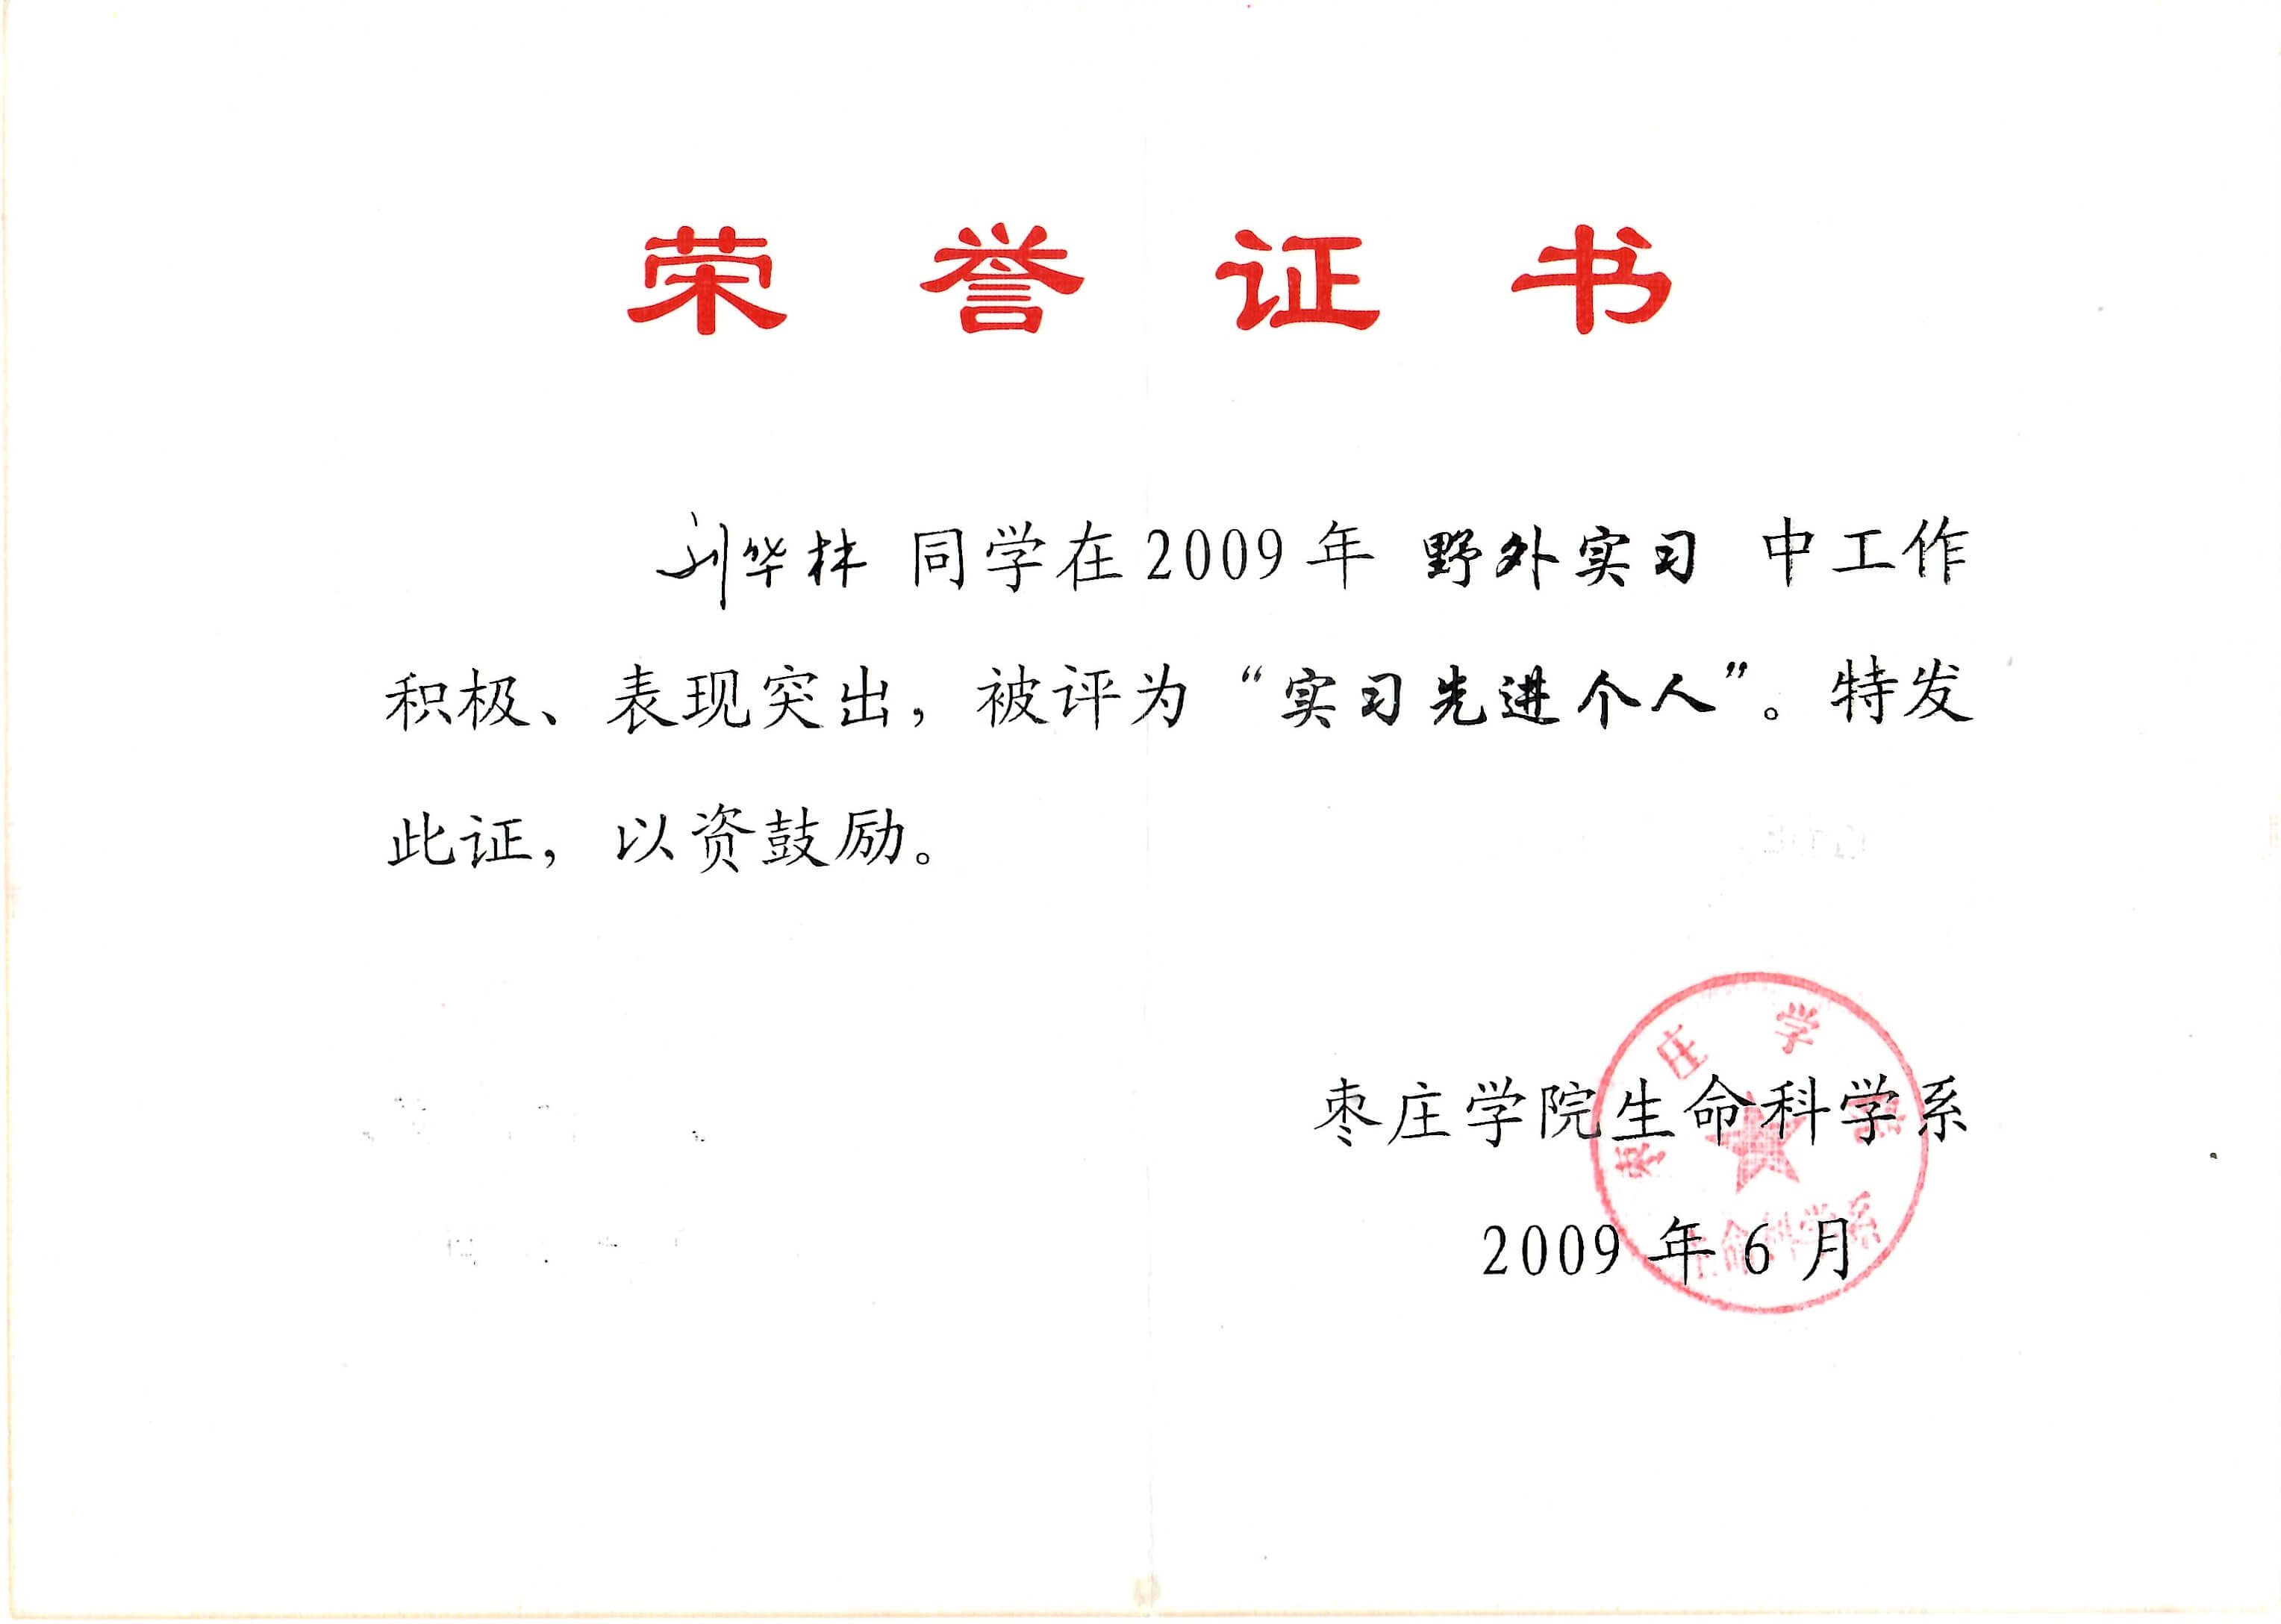 荣誉证书
刘华林 同学在2009年 野外实习 中工作
积极、表现突出，被评为“实习先进个人”。特发
此证，以资鼓励。
枣庄学院生命科学系
2009 年 6 月
枣庄学院
生命科学系